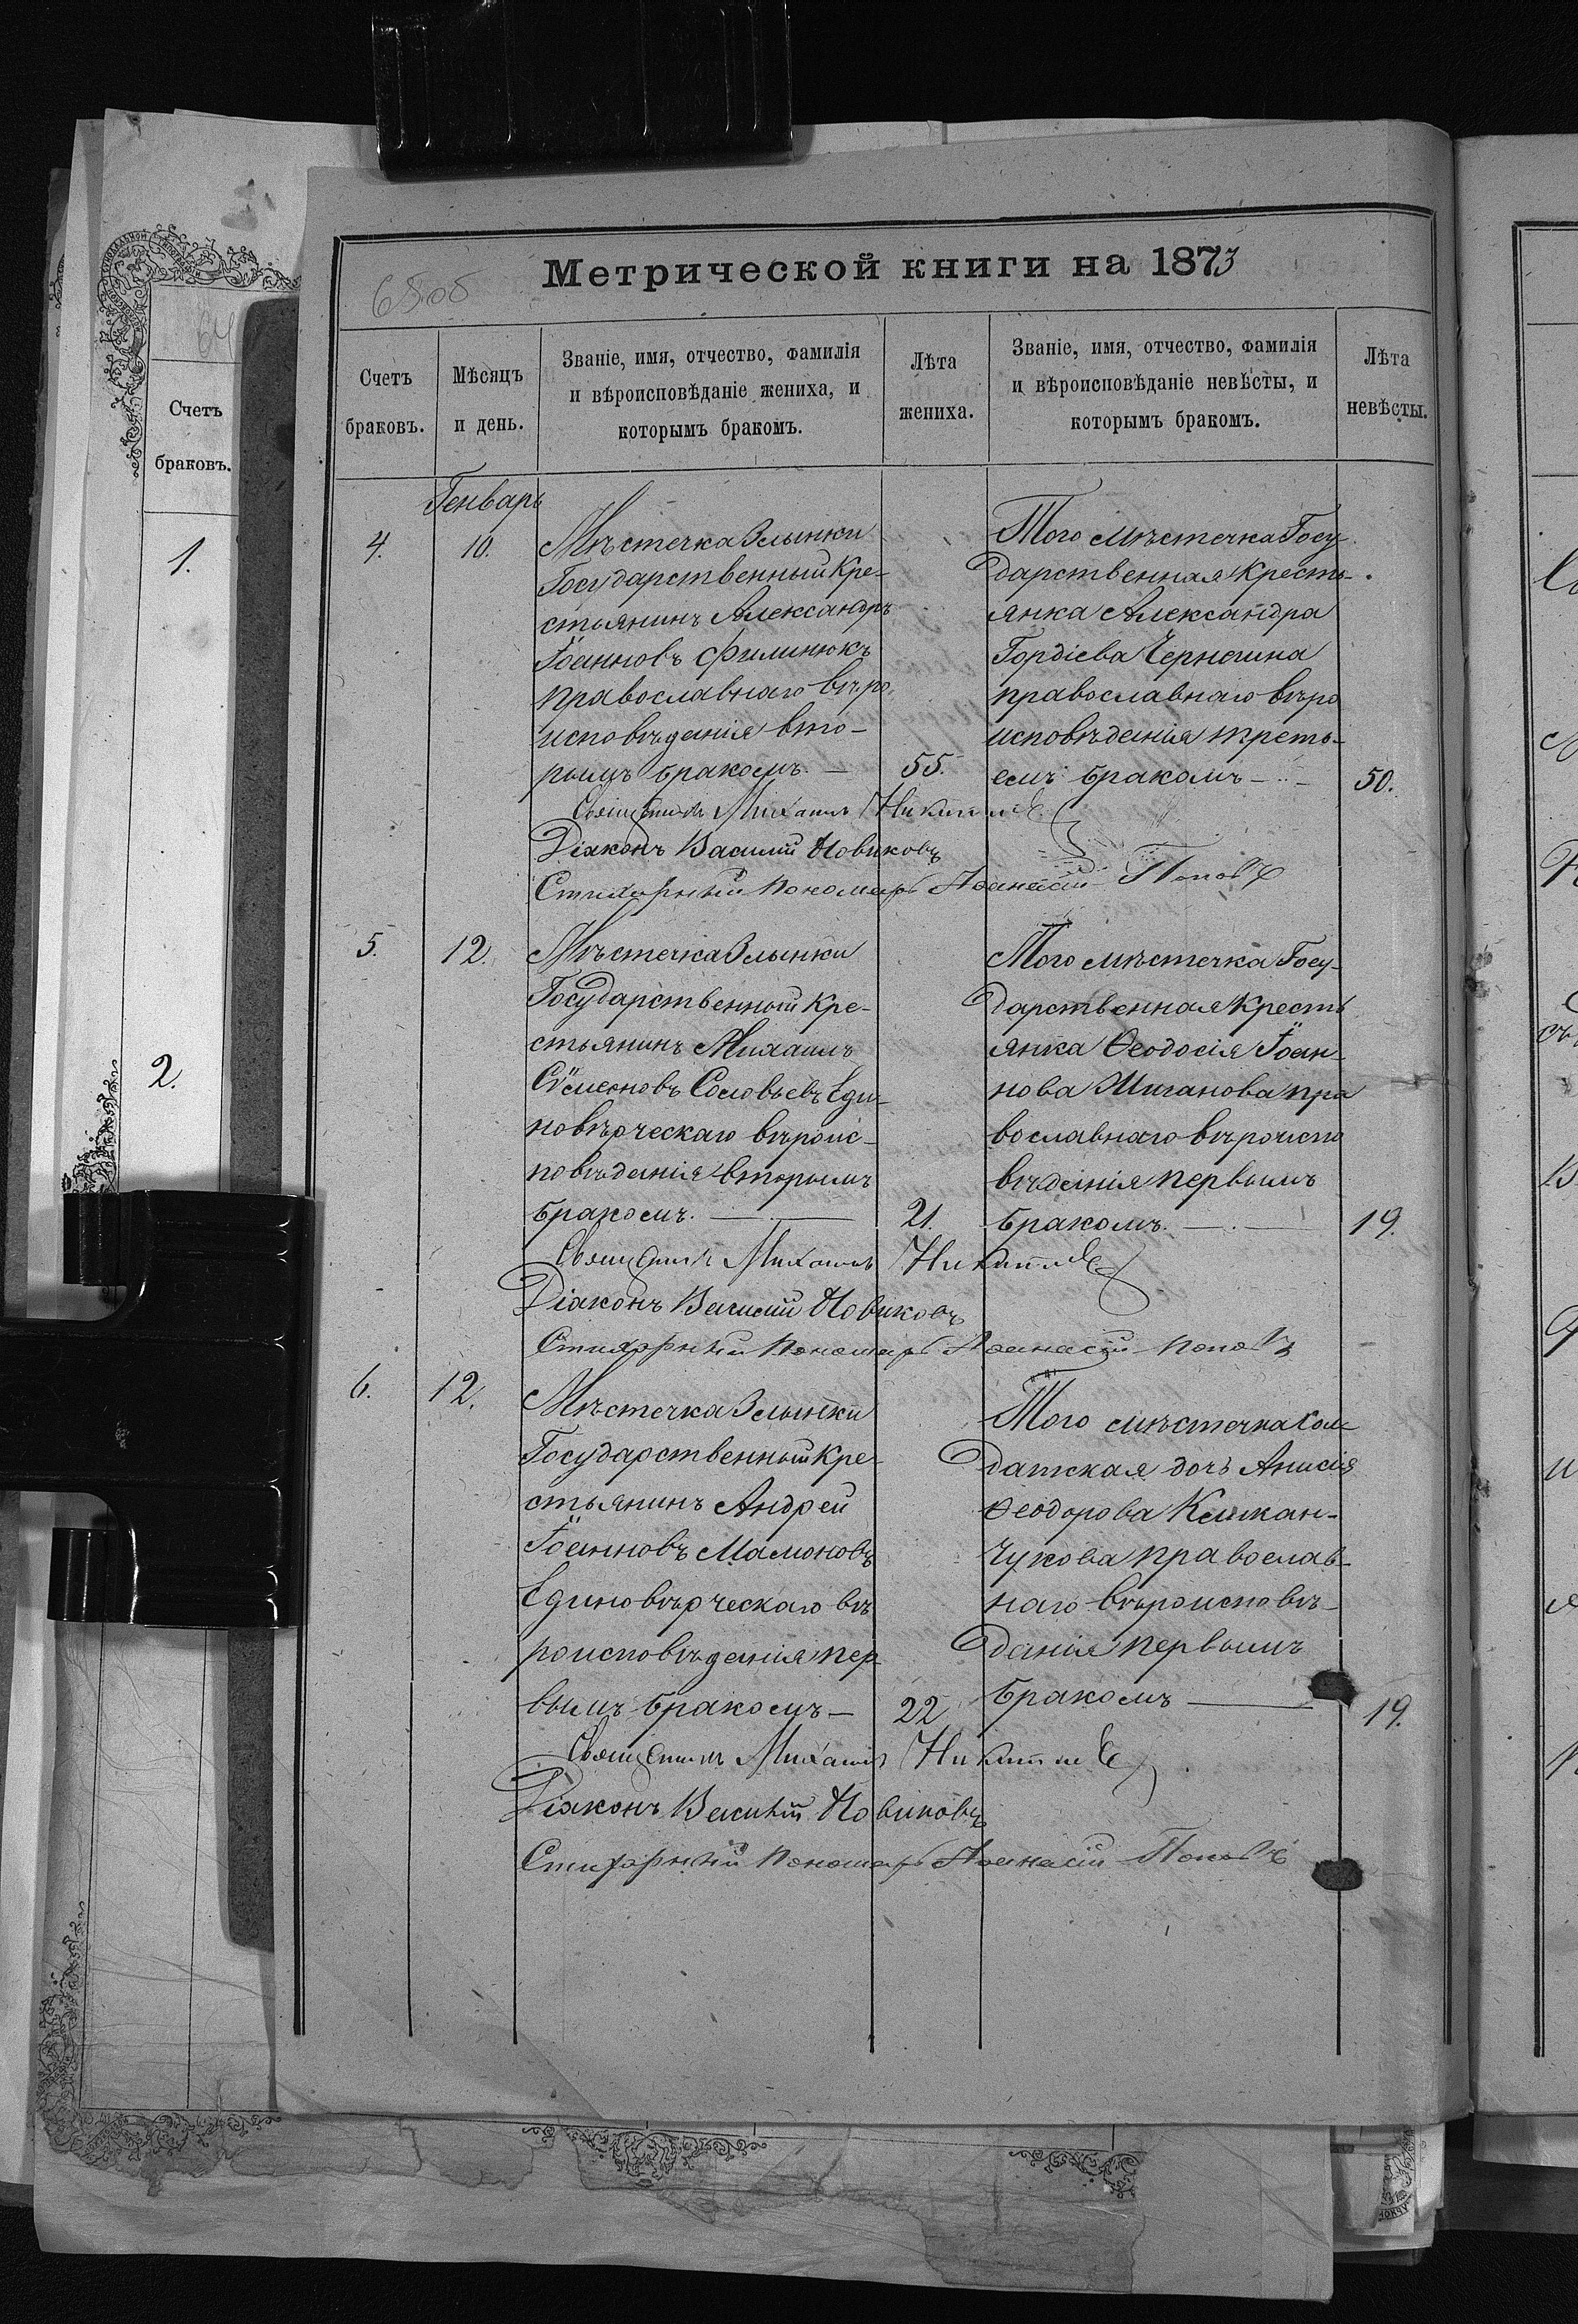 65об
Метрической книги на 1873
Счетъ браковъ.
Мѣсяцъ и день.
Званіе, имя, отчество, фамилія и вѣроисповѣданіе жениха, и которымъ бракомъ.
Лѣта жениха.
Званіе, имя, отчество, фамилія и вѣроисповѣданіе невѣсты, и которымъ бракомъ.
Лѣта невѣсты.
Генварь
4.
10.
Мѣстечка Злынки
Государственный Кре-
стьянинъ Александръ
Іоанновъ Филинюкъ
православнаго вѣро
исповѣданія вто-
рымъ бракомъ. —
55.
Того мѣстечка Госу-
дарственная Кресть-
янка Александра
Гордіева
православнаго вѣро
исповѣданія треть-
емъ бракомъ —
50.
Священникъ Михаилъ
Діаконъ Василій Новиковъ
Стихарный Пономарь Аѳанасій Поповъ
5.
12.
Мѣстечка Злынки
Государственный Кре-
стьянинъ Михаилъ
Сѵмеоновъ Соловьевъ Еди-
новѣрческаго вѣроис-
повѣданія вторымъ
бракомъ. —
21.
Того мѣстечка Госу-
дарственная Кресть
янка Ѳеодосія Іоан-
нова Шиганова пра
вославнаго вѣроиспо
вѣданія первымъ
бракомъ. —
19.
Священникъ Михаилъ
Діаконъ Василій Новиковъ
Стихарный Пономарь Аѳанасій Поповъ
6.
12.
Мѣстечка Злынки
Государственный Кре-
стьянинъ Андрей
Іоанновъ Мамоновъ
Единовѣрческаго вѣ
роисповѣданія пер
вымъ бракомъ —
22
Того мѣстечка Сол-
датская дочь Анисія
Ѳеодорова
чукова православ-
наго вѣроисповѣ-
данія первымъ
бракомъ —
19.
Священникъ Михаилъ
Діаконъ Василій Новиковъ
Стихарный Пономарь Аѳанасій Поповъ
64
Счетъ браковъ.
1.
2.